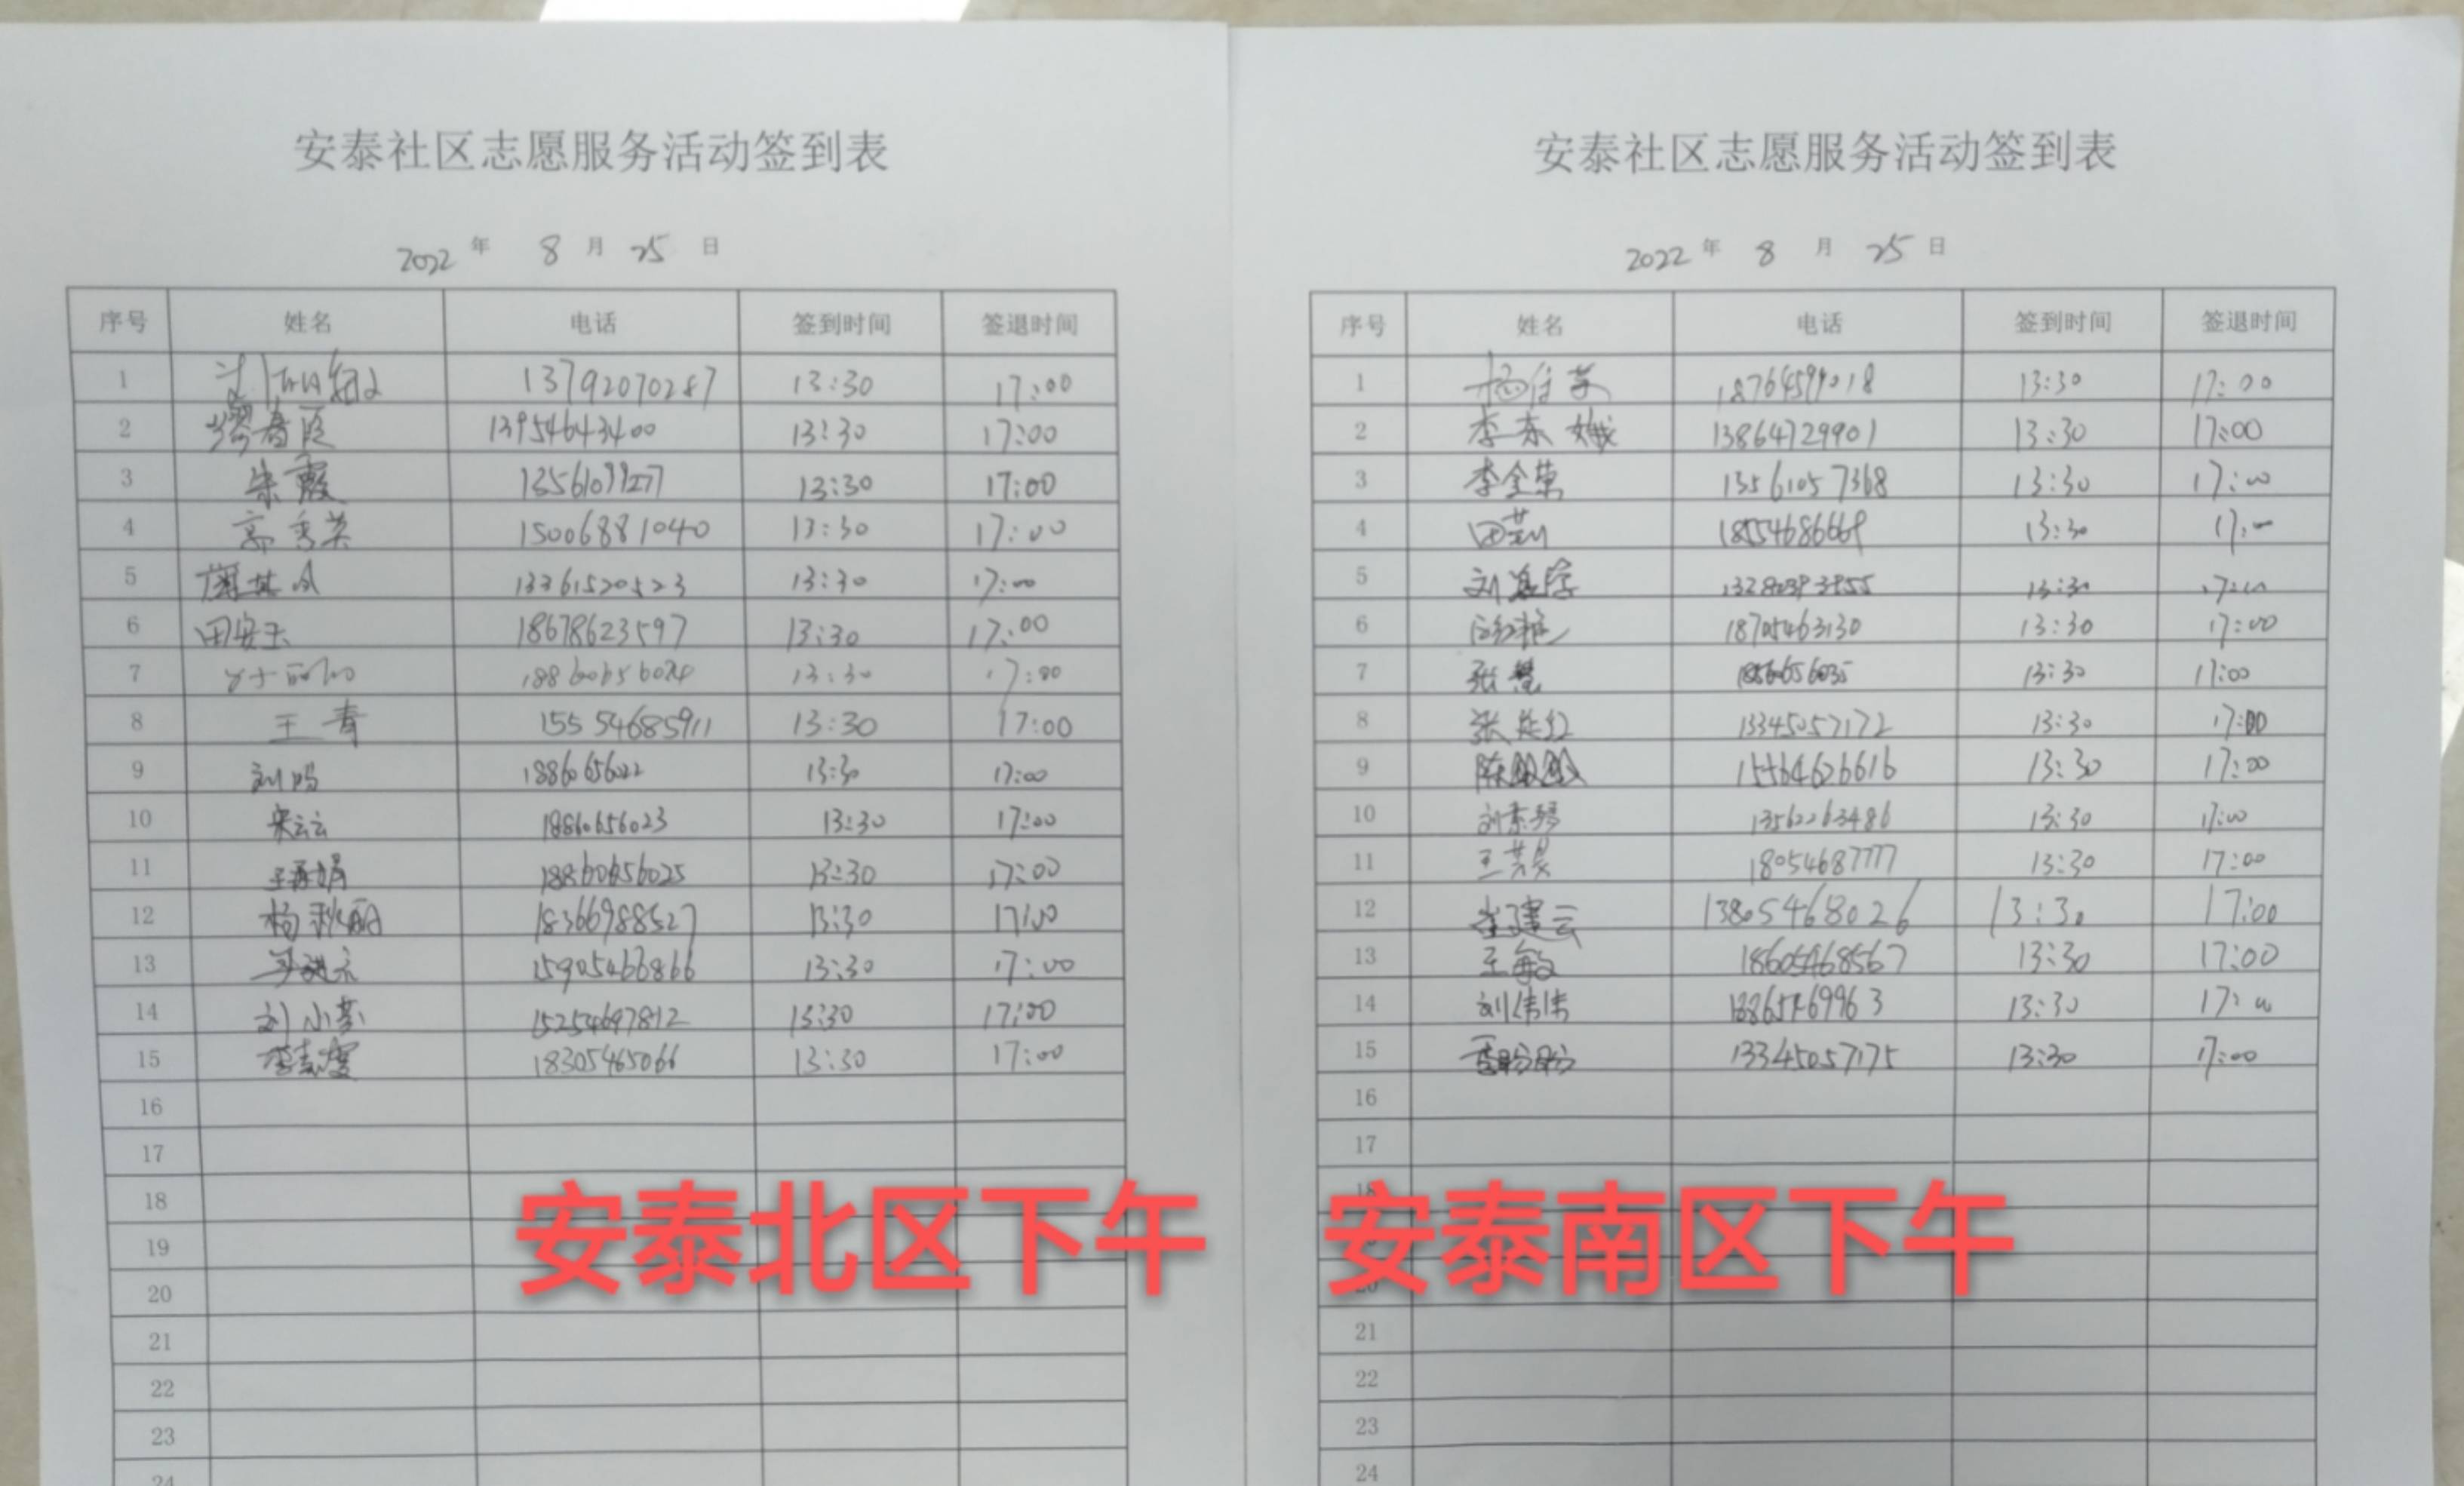 安泰社区志愿服务活动签到表
2022 年 8 月 25 日
序号 姓名 电话 签到时间 签退时间
1 13792070287 13:30 17:00
2 缪春霞 13954643400 13:30 17:00
3 朱霞 13561099277 13:30 17:00
4 高秀英 15006881040 13:30 17:00
5 13361520523 13:30 17:00
6 田安玉 18678623597 13:30 17:00
7 13:30 17:00
8 王青 15554685911 13:30 17:00
9 18860656022 13:30 17:00
10 宋云云 18860656023 13:30 17:00
11 18860656025 13:30 17:00
12 杨秋丽 18366988527 13:30 17:00
13 15905466866 13:30 17:00
14 刘小芬 15254697812 13:30 17:00
15 18305465066 13:30 17:00
16
17
18
19
20
21
22
23
24
安泰北区下午
安泰社区志愿服务活动签到表
2022 年 8 月 25 日
序号 姓名 电话 签到时间 签退时间
1 13:30 17:00
2 李东娥 13864729901 13:30 17:00
3 李全荣 13561057368 13:30 17:00
4 田莉 18554686669 13:30 17:00
5 13:30 17:00
6 18705463130 13:30 17:00
7 张慧 13:30 17:00
8 张红 13345057172 13:30 17:00
9 15564626616 13:30 17:00
10 刘素琴 13562263486 13:30 17:00
11 18054687777 13:30 17:00
12 崔建云 13805468026 13:30 17:00
13 王敏 18605468567 13:30 17:00
14 刘伟伟 13:30 17:00
15 13345057175 13:30 17:00
16
17
18
20
21
22
23
24
安泰南区下午